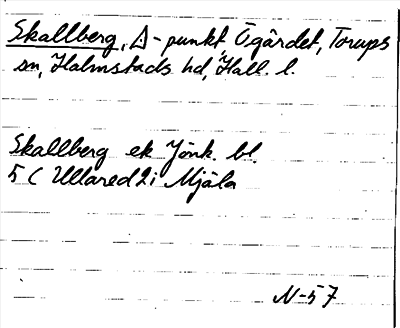 Skallberg, Δ-punkt, Ögärdet, Torups
sn, Halmstads hd, Hall. l.
Skallberg ek Jönk. bl.
5 C Ullared 2i Mjäla
N-57